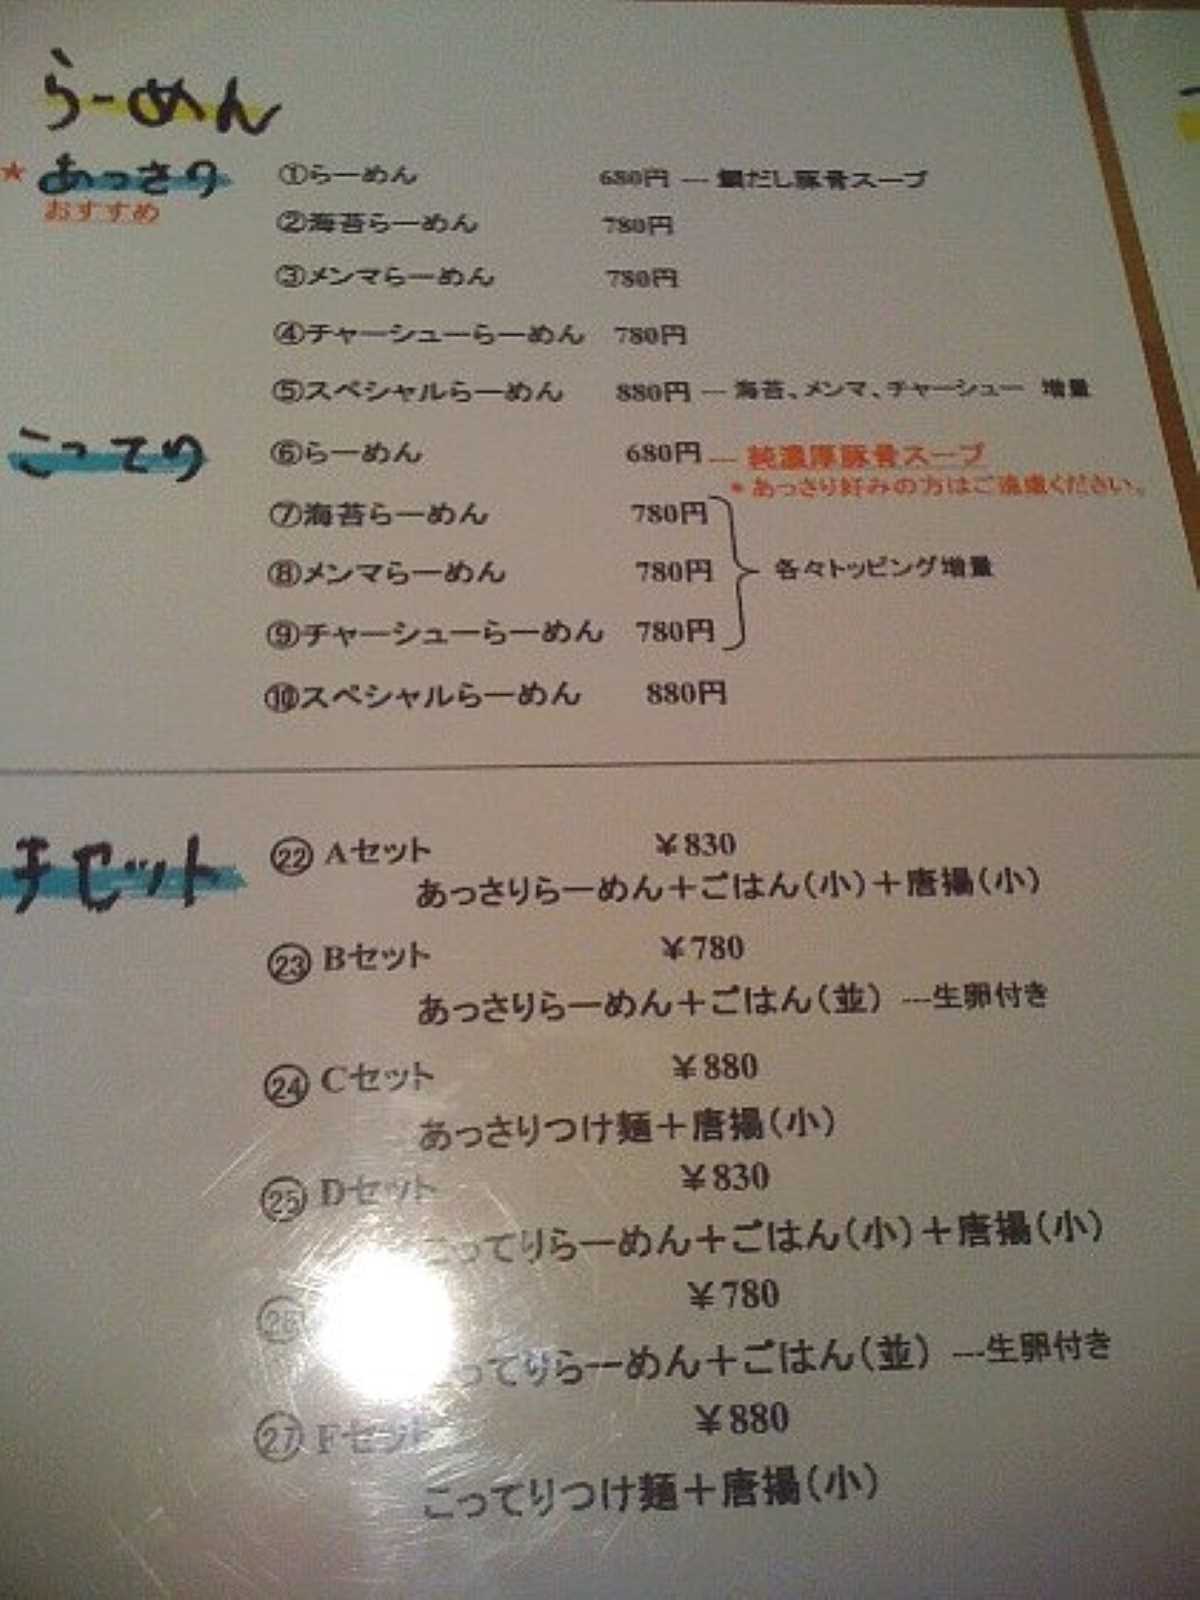 らーめん
★ あっさり ①らーめん 680円 ― 鯛だし豚骨スープ
おすすめ
②海苔らーめん 780円
③メンマらーめん 780円
④チャーシューらーめん 780円
⑤スペシャルらーめん 880円 ― 海苔、メンマ、チャーシュー 増量
こってり ⑥らーめん 680円 ― 純濃厚豚骨スープ
*あっさり好みの方はご遠慮ください。
⑦海苔らーめん 780円
⑧メンマらーめん 780円 各々トッピング増量
⑨チャーシューらーめん 780円
⑩スペシャルらーめん 880円
チセット ㉒ Aセット ¥830
あっさりらーめん+ごはん(小)+唐揚(小)
㉓ Bセット ¥780
あっさりらーめん+ごはん(並) ---生卵付き
㉔ Cセット ¥880
あっさりつけ麺+唐揚(小)
㉕ Dセット ¥830
こってりらーめん+ごはん(小)+唐揚(小)
㉖ ¥780
こってりらーめん+ごはん(並) ---生卵付き
㉗ Fセット ¥880
こってりつけ麺+唐揚(小)